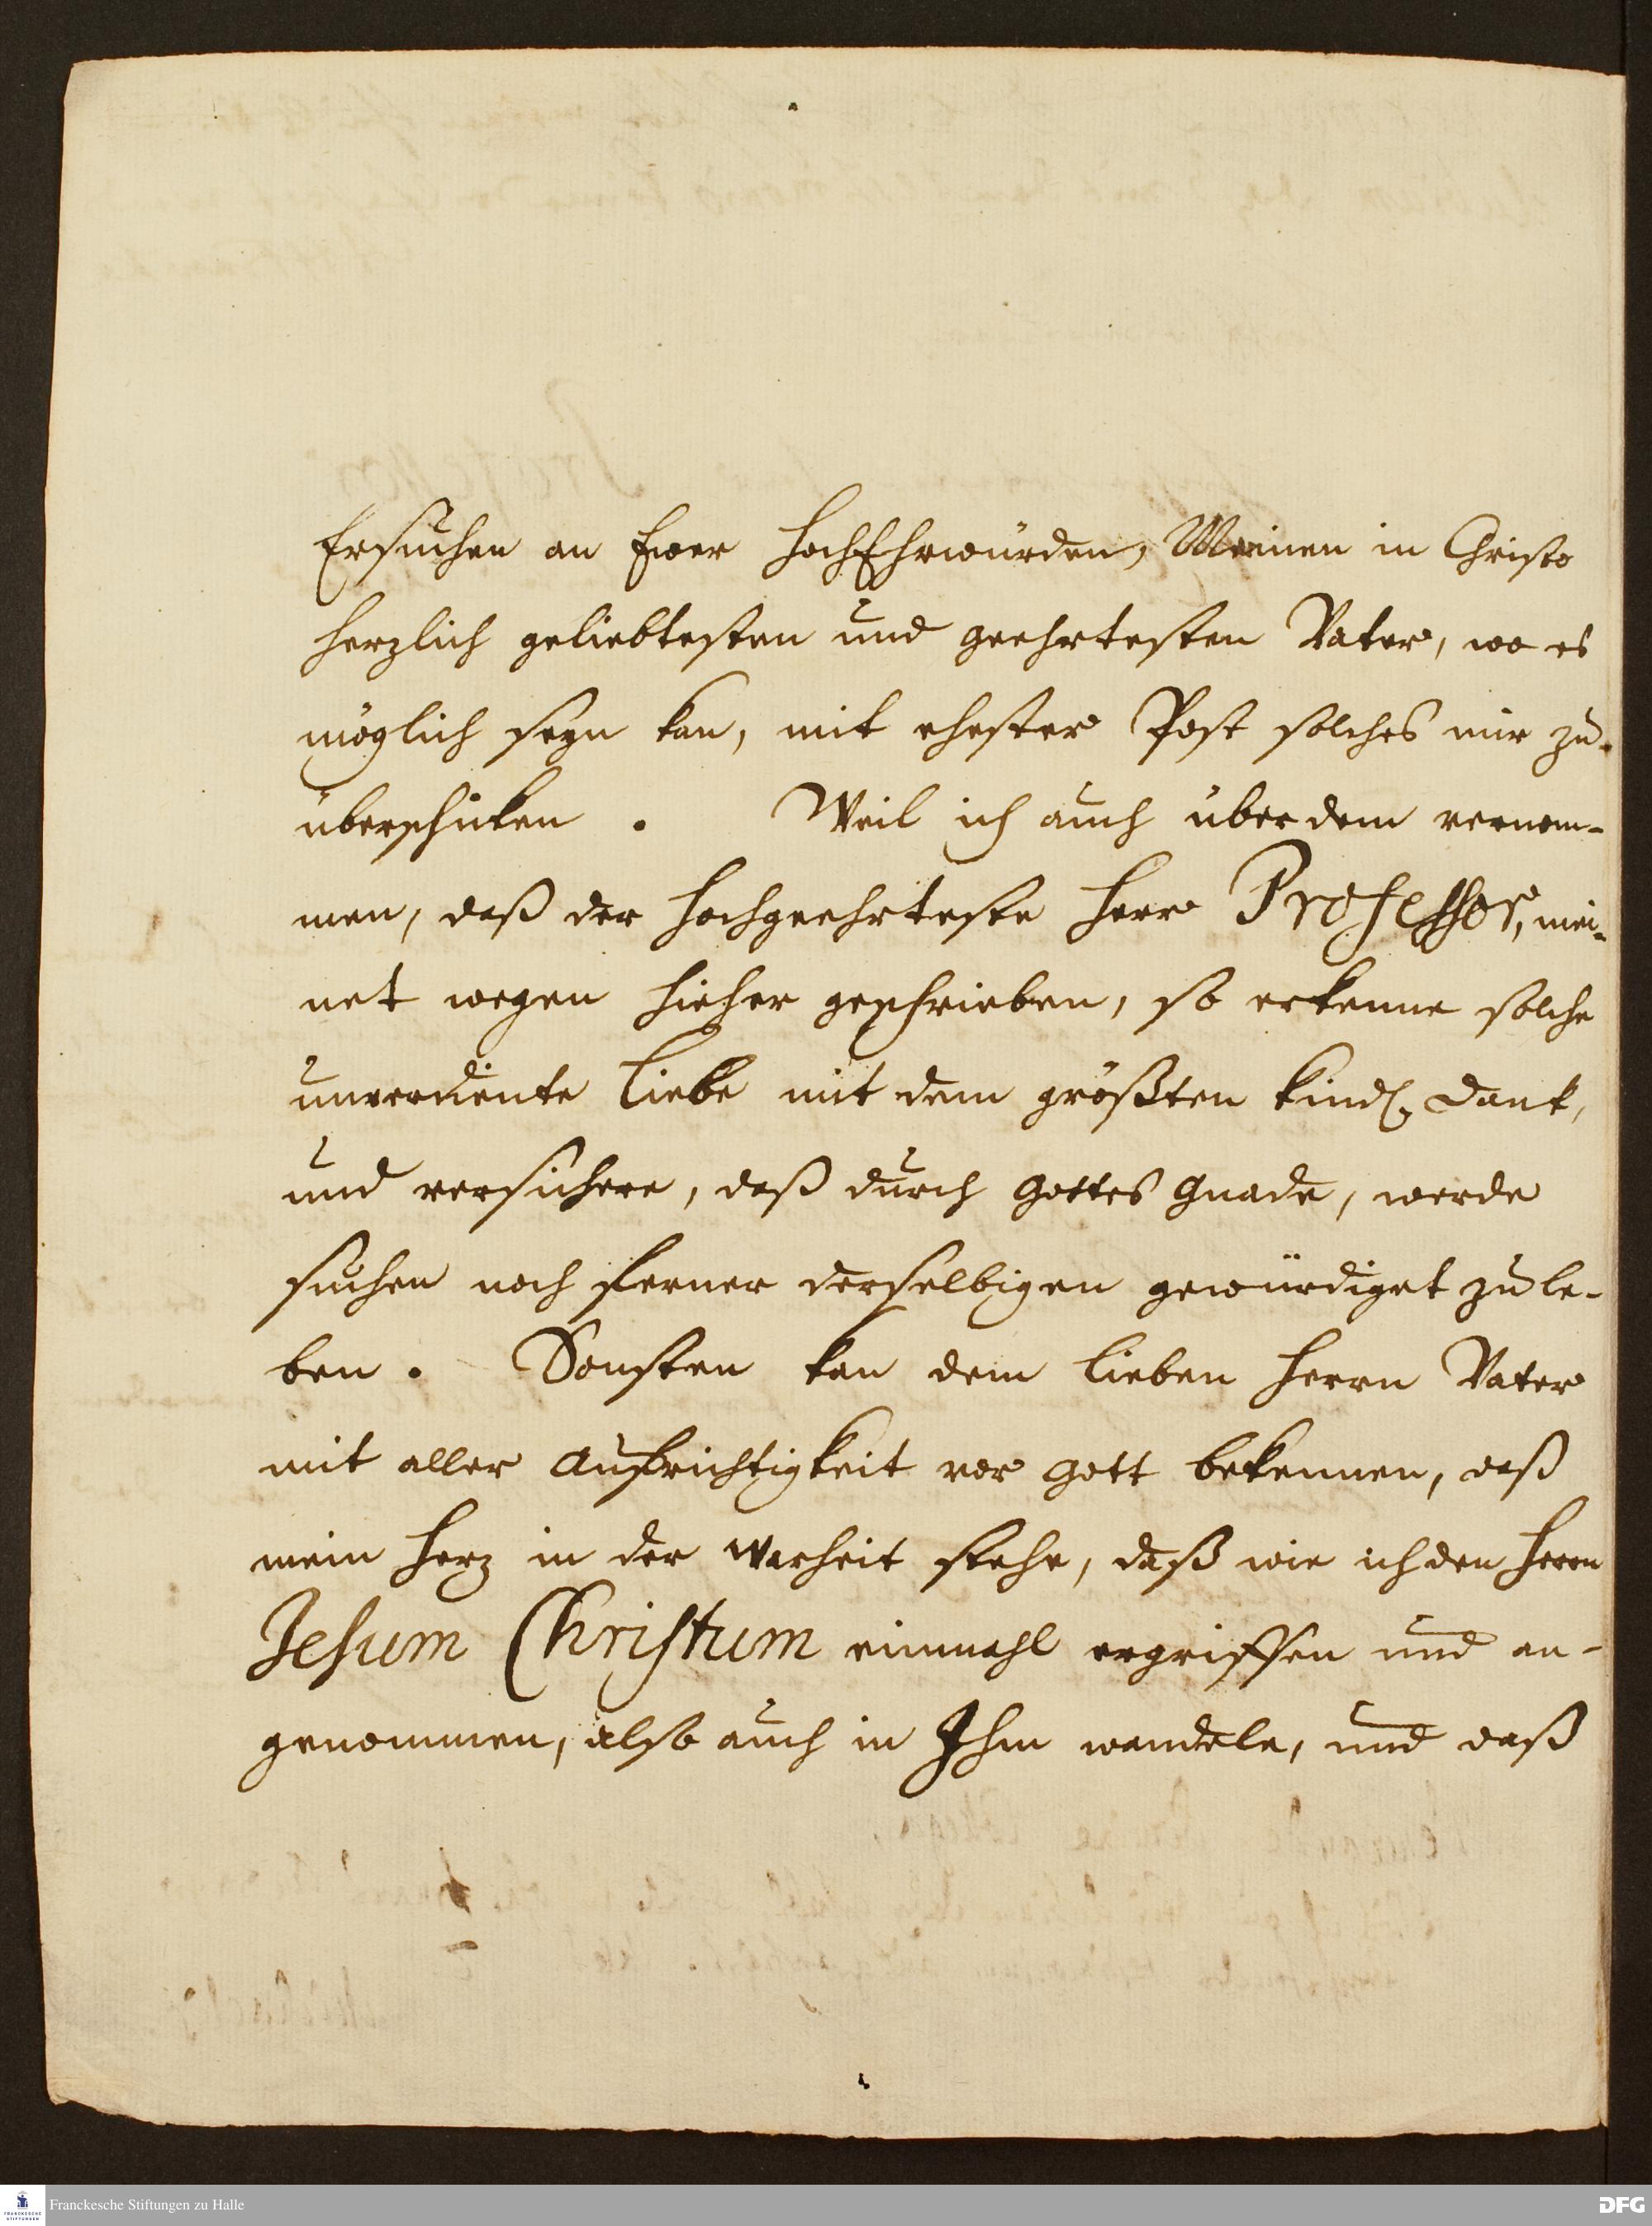 Ersuchen an Ewer HochEhrwürden, Meinen in Christo
herzlich geliebtesten und geehrtesten Vater, wo es
möglich seyn kan, mit ehester Post solches mir zu-
überschicken. Weil ich auch über dem vernom-
men, daß der Hochgeehrteste Herr Professor, mei-
net wegen hieher geschrieben, so erkenne solche
unverdiente Liebe mit dem größten kindl. Dank,
und versichere, daß durch Gottes Gnade, werde
suchen noch ferner derselbigen gewürdiget zu le-
ben. Sonsten kan dem lieben Herrn Vater
mit aller Aufrichtigkeit vor Gott bekennen, daß
mein Herz in der Warheit stehe, daß wie ich den Herrn
Jesum Christum einmahl ergriffen und an-
genommen, also auch in Ihm wandele, und daß
Franckesche Stiftungen zu Halle
FRANCKESCHE STIFTUNGEN
DFG